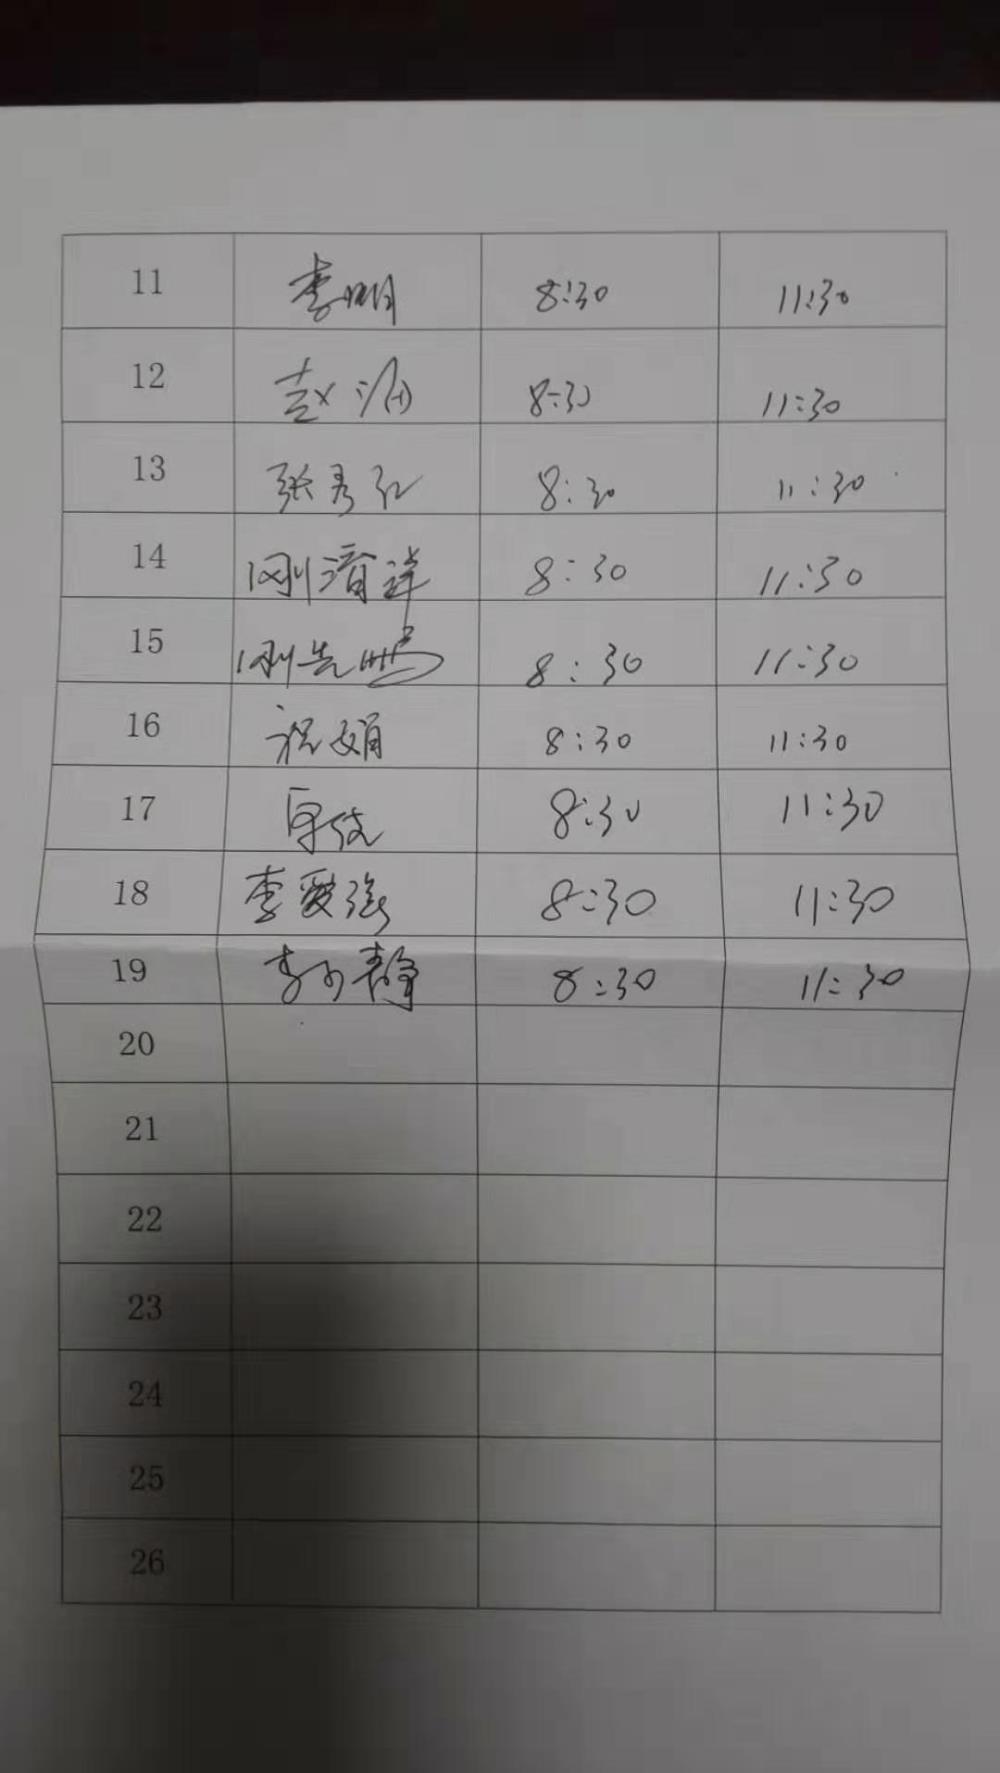 11 李明 8:30 11:30
12 赵 8:30 11:30
13 张秀红 8:30 11:30
14 刚清洋 8:30 11:30
15 刚先鹏 8:30 11:30
16 祝娟 8:30 11:30
17 8:30 11:30
18 李爱强 8:30 11:30
19 李 静 8:30 11:30
20
21
22
23
24
25
26